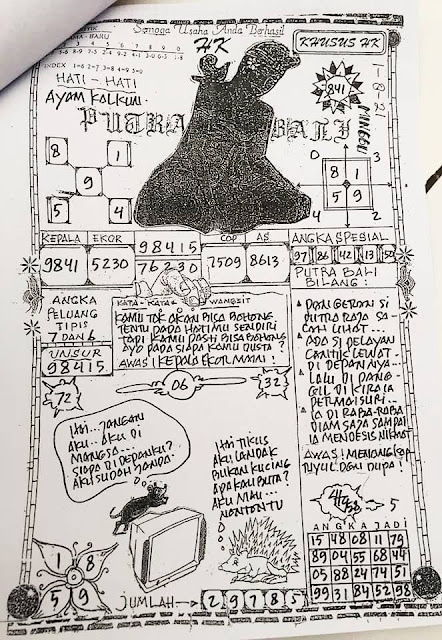 Semoga Usaha Anda Berhasil
HK
KHUSUS HK
INDEX 1=6 2=7 3=8 4=9 5=0
HATI - HATI
AYAM KALKUN.
841
1-8-21
MINGGU
PUTRA BALI
8 1
9
5 4
0 3
8 1
5 9
4 2
KEPALA EKOR
9841 5230
98415
76230
COP AS
7509 8613
ANGKA SPESIAL
97 86 42 13
PUTRA BALI
BILANG :
ANGKA
PELUANG
TIPIS
7 DAN 6
UNSUR
98415
KATA - KATA WANGSIT
KAMU TDK AKAN BISA BOHONG
TENTU PADA HATIMU SENDIRI
TAPI KAMU PASTI BISA BOHONG
AYO PADA SIAPA KAMU DUSTA ?
AWAS ! KEPALA EKOR MATI !
DAN GERONI SI
PUTRA RAJA SA-
ADA SI PELAYAN
CANTIK LEWAT -
DI DEPANNYA...
LALU DI PANG-
GIL DI KIRA IA
PERMAISURI...
IA DI RABA-RABA
DIAM SAJA SAMPAI
IA MENDESIS NIKMAT
AWAS !
TUYUL DAN DUPA !
72
06
32
HAI...JANGAN
AKU.. AKU DI
MANGSA...
SIAPA DI DEPANKU?
AKU SUDAH JANDA.
HAI TIKUS
AKU LANDAK
BUKAN KUCING
APA KAU BUTA ?
AKU MAU...
NONTON TV
5
ANGKA JADI
15 48 08 11 79
89 04 55 68 44
05 88 24 74 51
99 31 84 52 98
1 8
5 9
JUMLAH → 29785